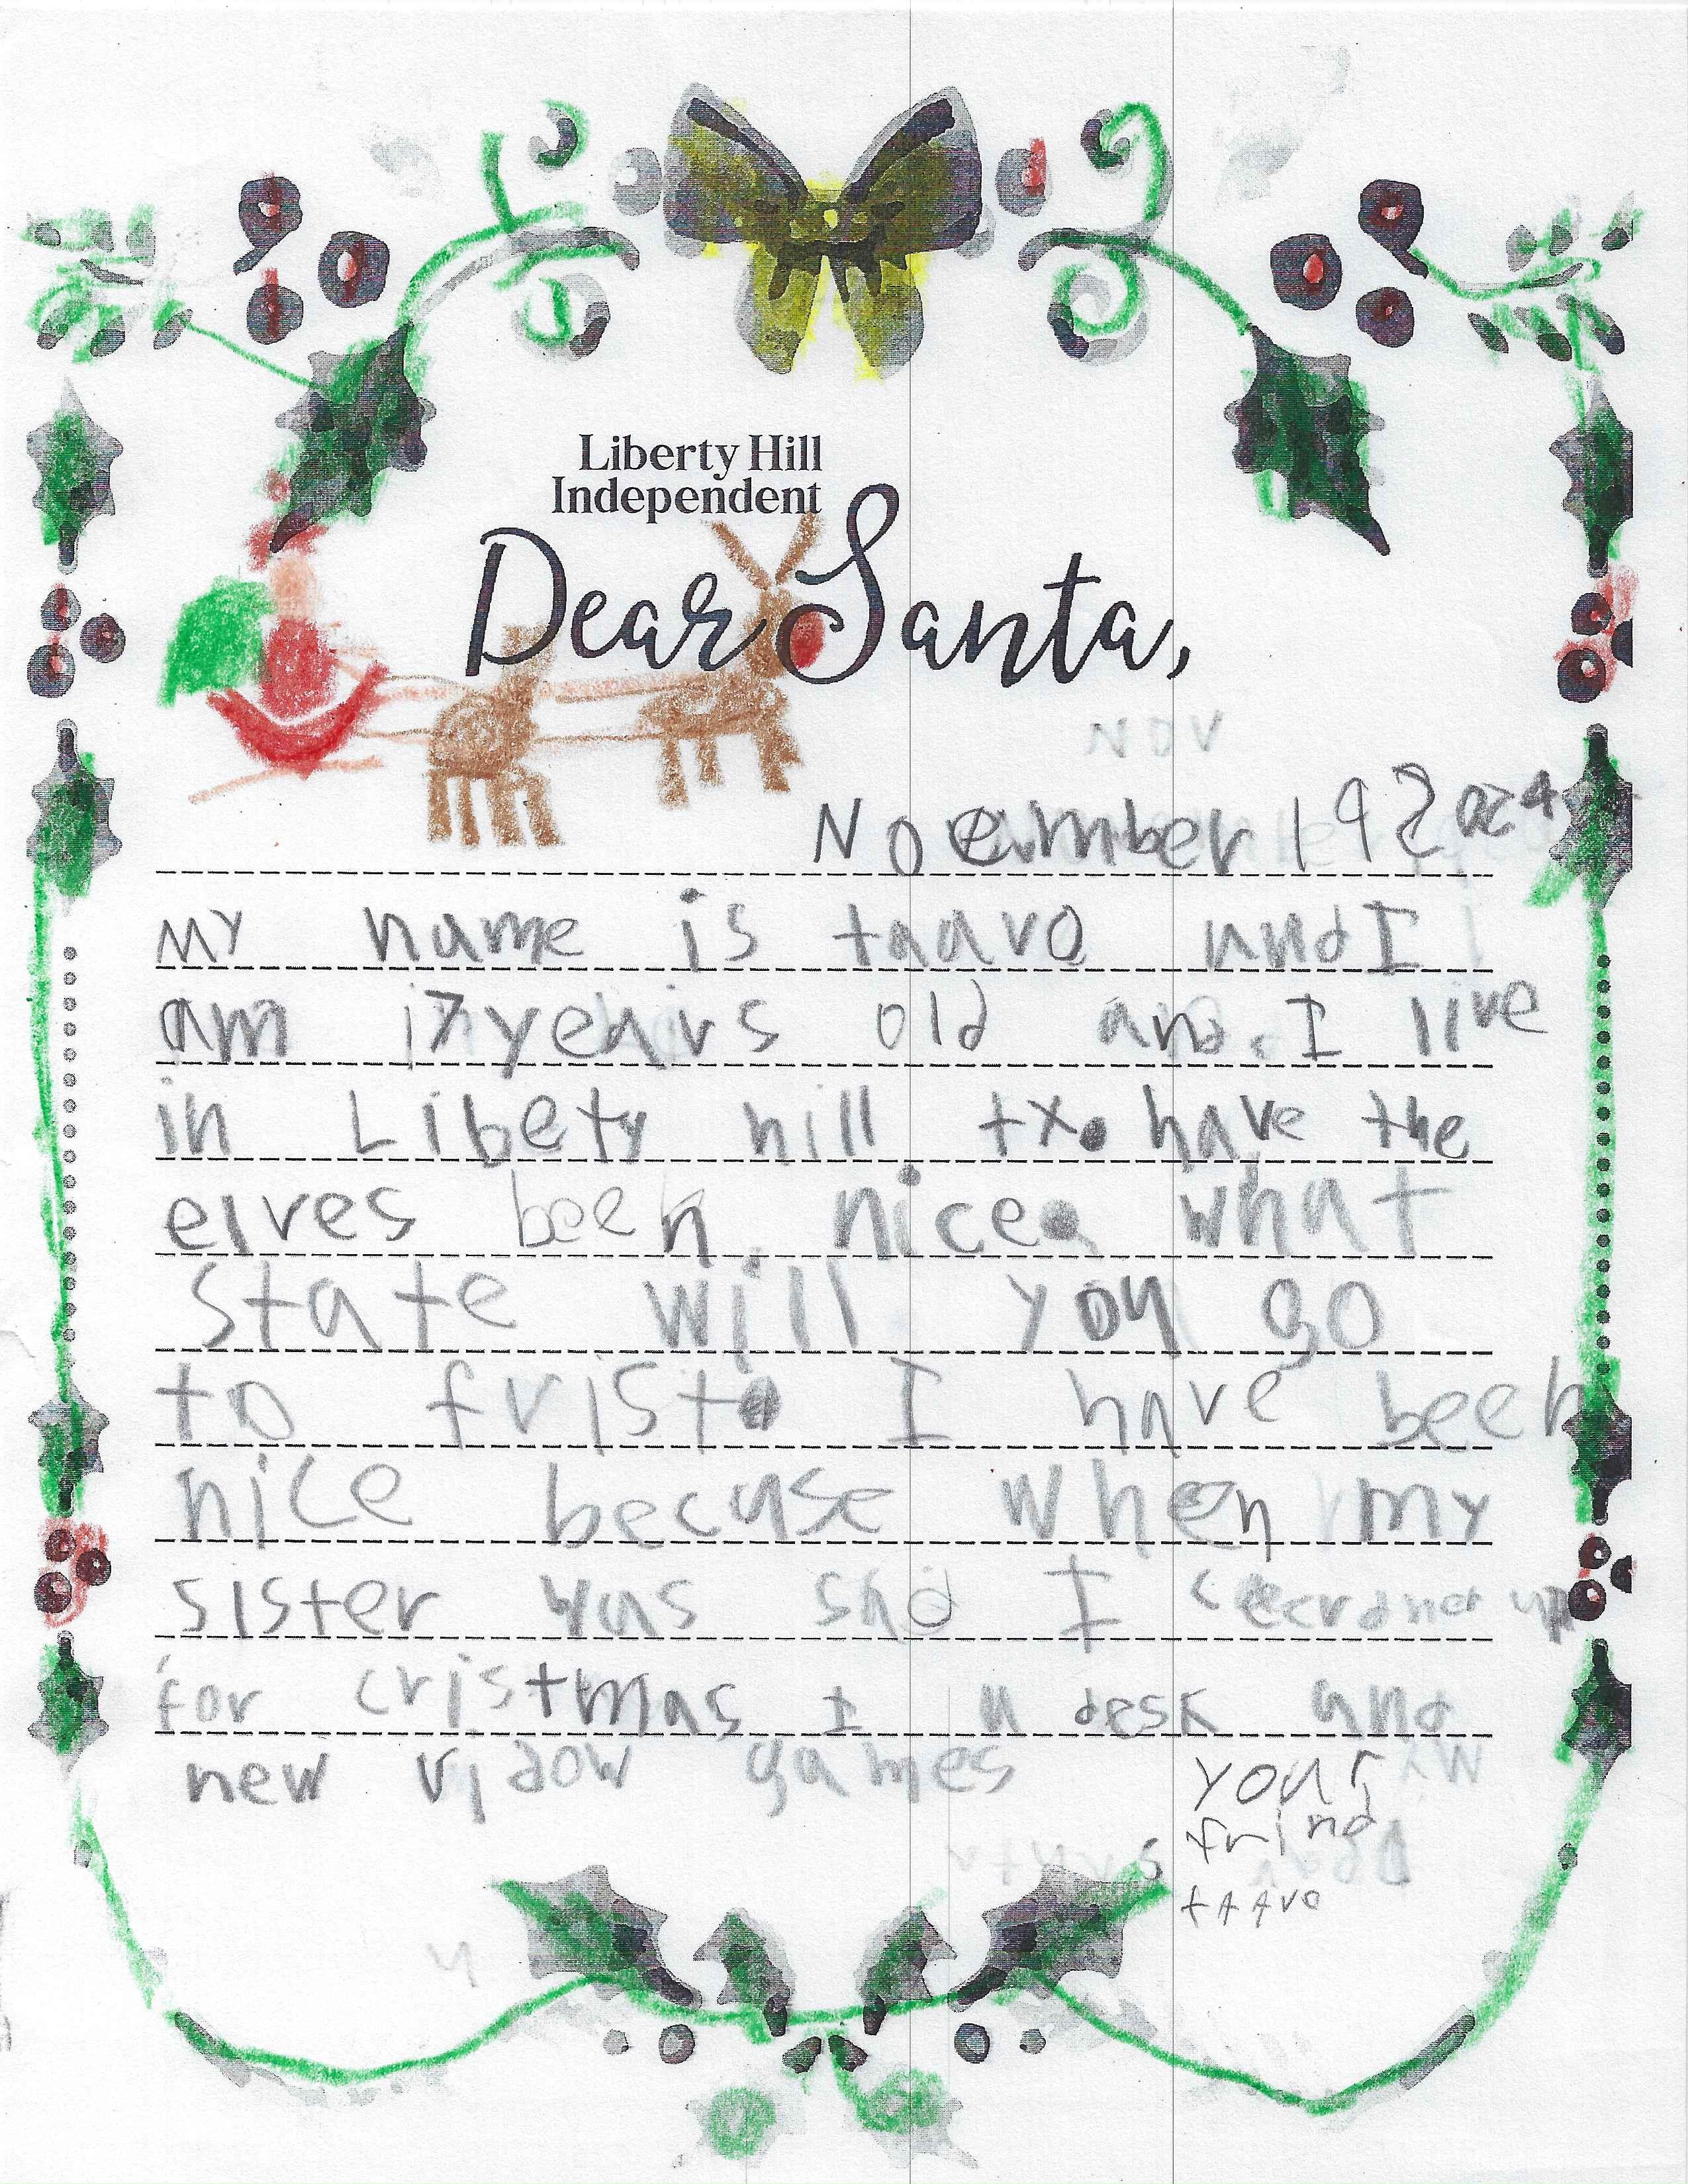 Liberty Hill
Independent
Dear Santa,
Nov
Noember 19 2024
my name is taavo and I
am 7 years old and I live
in Libety hill tx. have the
elves been nice. what
state will you go
to frist. I have been
nice becuse when my
sister was sad I up
for cristmas I a desk and
new vidow games
your
frind
taavo